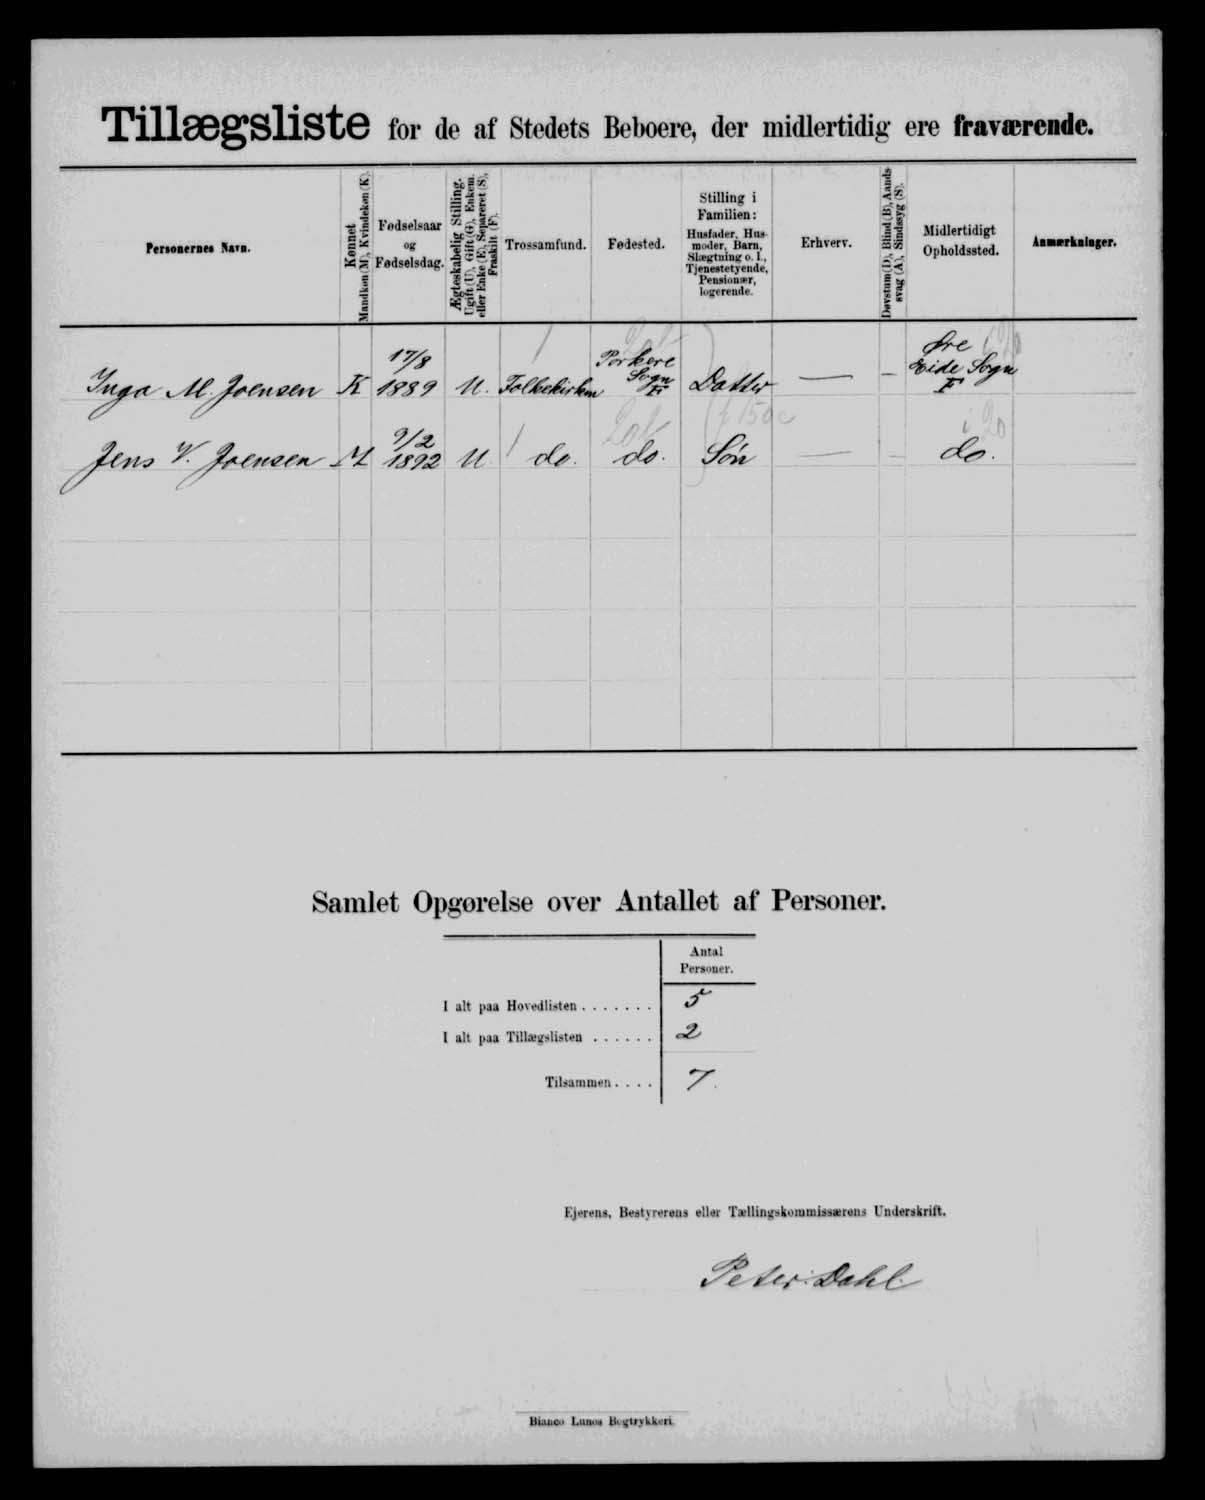 Tillægsliste for de af Stedets Beboere, der midlertidig ere fraværende.
Personernes Navn.
Kønnet
Mandkøn (M), Kvindekøn (K).
Fødselsaar
og
Fødselsdag.
Ægteskabelig Stilling.
Ugift (U), Gift (G), Enkem.
eller Enke (E), Separeret (S),
Fraskilt (F).
Trossamfund.
Fødested.
Stilling i
Familien:
Husfader, Hus-
moder, Barn,
Slægtning o. l.,
Tjenestetyende,
Pensionær,
logerende.
Erhverv.
Døvstum (D), Blind (B), Aands-
svag (A), Sindssyg (S).
Midlertidigt
Opholdssted.
Anmærkninger.
Inga M. Joensen K 17/8 1889 U. Folkekirken Porkere Sogn F Datter — — Øre Eide Sogn F
Jens V. Joensen M 9/2 1892 U. do. do. Søn — — do.
Samlet Opgørelse over Antallet af Personer.
Antal
Personer.
I alt paa Hovedlisten . . . . . . . 5
I alt paa Tillægslisten . . . . . . 2
Tilsammen . . . . 7.
Ejerens, Bestyrerens eller Tællingskommissærens Underskrift.
Peter Dahl.
Bianco Lunos Bogtrykkeri.